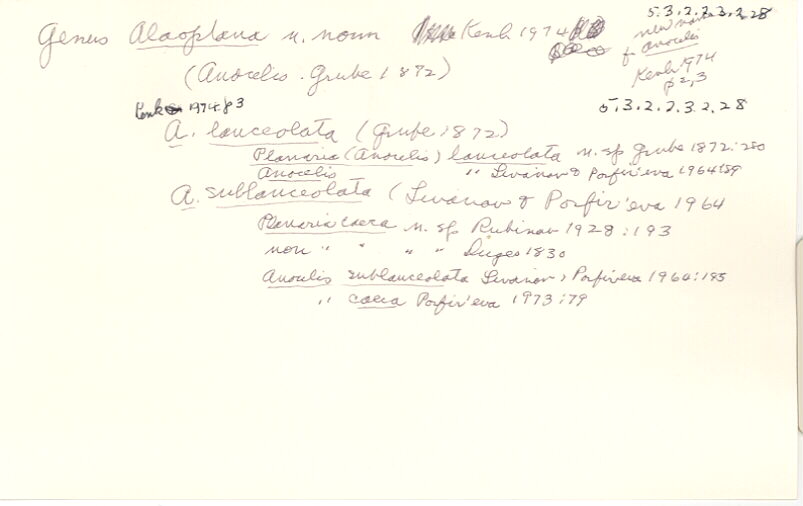 5.3.2.2.3.2.28
Genus Alaoplana n. nom Kenk 1974
new name
f. Anocelis
Kenk 1974
p 2, 3
(Anocelis. Grube 1872)
Kenk 1974 p 3
5.3.2.2.3.2.28
A. lanceolata (Grube 1872)
Planaria (Anocelis) lanceolata n. sp Grube 1872:280
Anocelis " Livanov & Porfir'eva 1964:189
A. sublanceolata (Livanov & Porfir'eva 1964
Planaria caeca n. sp Rubinov 1928:193
non " " " " Duges 1830
Anocelis sublanceolata Livanov, Porfir'eva 1964:195
" caeca Porfir'eva 1973:79